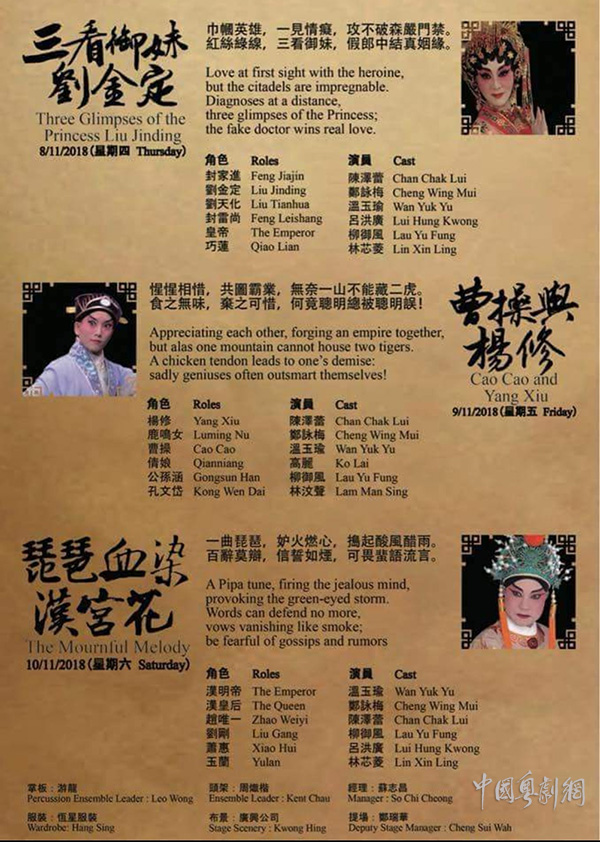 三看御妹
劉金定
Three Glimpses of the
Princess Liu Jinding
8/11/2018(星期四 Thursday)
巾幗英雄，一見情癡，攻不破森嚴門禁。
紅絲綠線，三看御妹，假郎中結真姻緣。
Love at first sight with the heroine,
but the citadels are impregnable.
Diagnoses at a distance,
three glimpses of the Princess;
the fake doctor wins real love.
角色 Roles 演員 Cast
封家進 Feng Jiajin 陳澤蕾 Chan Chak Lui
劉金定 Liu Jinding 鄭詠梅 Cheng Wing Mui
劉天化 Liu Tianhua 溫玉瑜 Wan Yuk Yu
封雷尚 Feng Leishang 呂洪廣 Lui Hung Kwong
皇帝 The Emperor 柳御風 Lau Yu Fung
巧蓮 Qiao Lian 林芯菱 Lin Xin Ling
惺惺相惜，共圖霸業，無奈一山不能藏二虎。
食之無味，棄之可惜，何竟聰明總被聰明誤！
Appreciating each other, forging an empire together,
but alas one mountain cannot house two tigers.
A chicken tendon leads to one's demise:
sadly geniuses often outsmart themselves!
曹操與
楊修
Cao Cao and
Yang Xiu
9/11/2018(星期五 Friday)
角色 Roles 演員 Cast
楊修 Yang Xiu 陳澤蕾 Chan Chak Lui
鹿鳴女 Luming Nu 鄭詠梅 Cheng Wing Mui
曹操 Cao Cao 溫玉瑜 Wan Yuk Yu
倩娘 Qianniang 高麗 Ko Lai
公孫涵 Gongsun Han 柳御風 Lau Yu Fung
孔文岱 Kong Wen Dai 林汶聲 Lam Man Sing
琵琶血染
漢宮花
The Mournful Melody
10/11/2018(星期六 Saturday)
一曲琵琶，妒火燃心，搗起酸風醋雨。
百辭莫辯，信誓如煙，可畏蜚語流言。
A Pipa tune, firing the jealous mind,
provoking the green-eyed storm.
Words can defend no more,
vows vanishing like smoke;
be fearful of gossips and rumors
角色 Roles 演員 Cast
漢明帝 The Emperor 溫玉瑜 Wan Yuk Yu
漢皇后 The Queen 鄭詠梅 Cheng Wing Mui
趙唯一 Zhao Weiyi 陳澤蕾 Chan Chak Lui
劉剛 Liu Gang 柳御風 Lau Yu Fung
蕭惠 Xiao Hui 呂洪廣 Lui Hung Kwong
玉蘭 Yulan 林芯菱 Lin Xin Ling
掌板：游龍 頭架：周熾楷 經理：蘇志昌
Percussion Ensemble Leader : Leo Wong Ensemble Leader : Kent Chau Manager : So Chi Cheong
服裝：恆星服裝 布景：廣興公司 提場：鄭瑞華
Wardrobe: Hang Sing Stage Scenery : Kwong Hing Deputy Stage Manager : Cheng Sui Wah
中國粵劇網